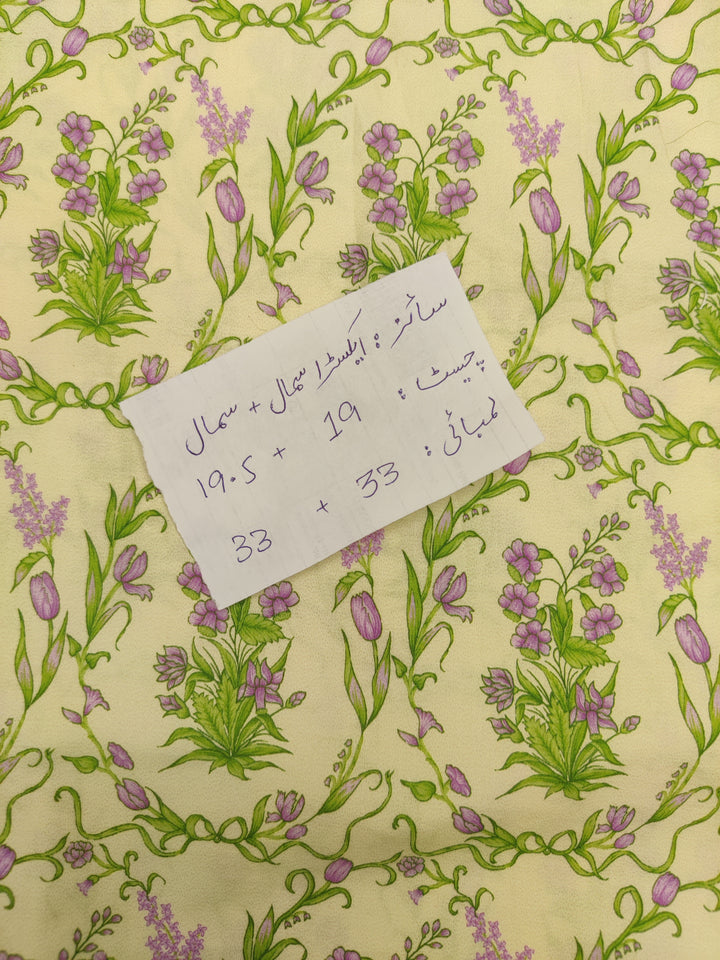 سائز : ایکسٹرا سمال + سمال
چیسٹ : 19 + 19.5
لمبائی : 33 + 33